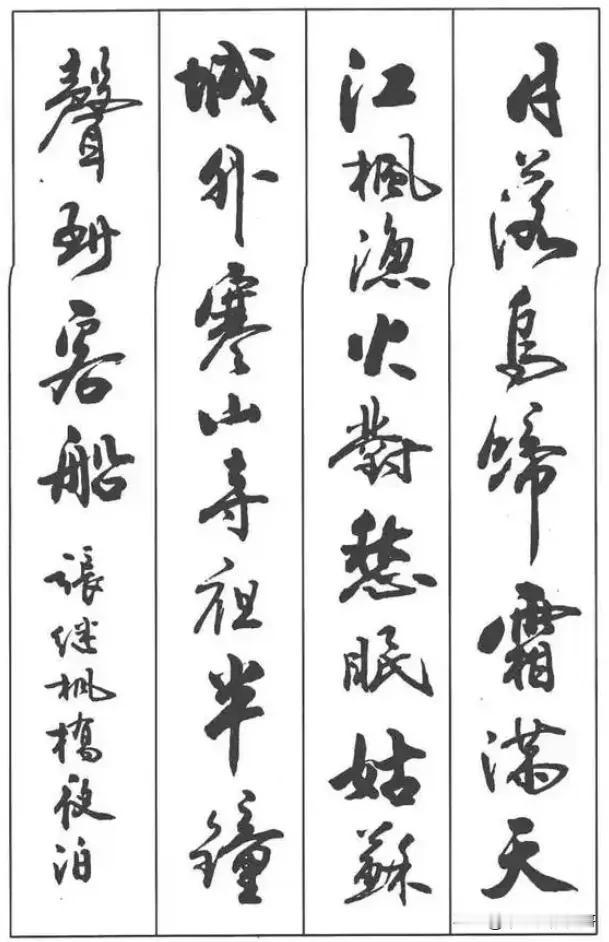 月落烏啼霜滿天
江楓漁火對愁眠姑蘇
城外寒山寺祖半鐘
聲到客船
張继枫橋夜泊